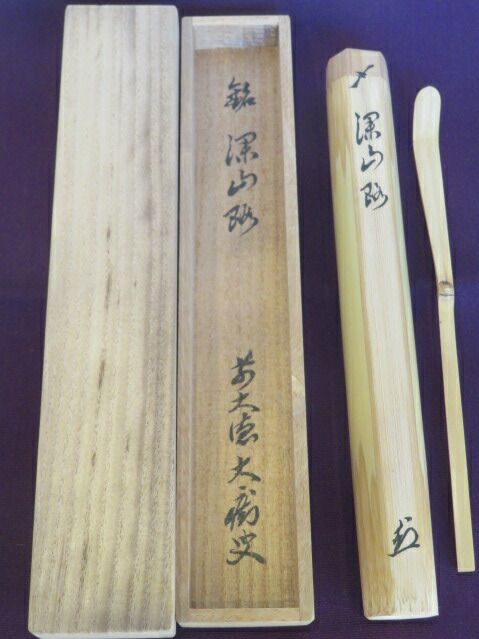 銘 深山路
前大徳 大
〆 深山路